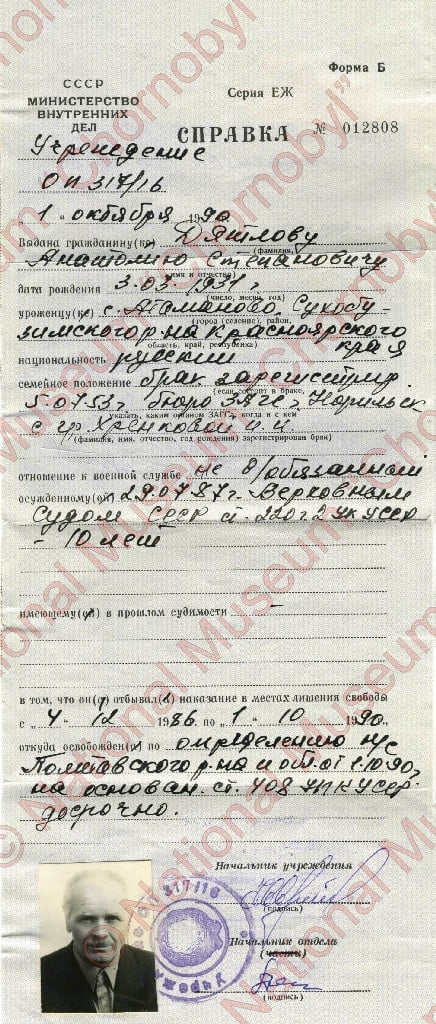 Форма Б
СССР
МИНИСТЕРСТВО
ВНУТРЕННИХ
ДЕЛ
Серия ЕЖ
СПРАВКА № 012808
Учреждение
ОП 317/16
„1“ октября 1990
Выдана гражданину(ке) Дятлову
(фамилия,
Анатолию Степановичу
имя и отчество)
дата рождения 3.03.1931г.
(число, месяц, год)
уроженцу(ке) с. Атаманово Сухобу-
(город (селение), район,
зимского р-на Красноярского
область, край, республика)
края
национальность русский
семейное положение брак зарегистрир.
(если состоит в браке,
5.07.53г. бюро ЗАГС г. Норильск
указать, каким органом ЗАГС, когда и с кем
с гр. Хренковой И.И.
(фамилия, имя, отчество, год рождения) зарегистрирован брак)
отношение к военной службе не в/обязанный
осужденному(ой) 29.07.87г. Верховным
Судом СССР ст. 220 ч 2 УК УССР
- 10 лет
имеющему(ей) в прошлом судимости –
в том, что он(а) отбывал(а) наказание в местах лишения свободы
с „4“ 12 1986 по „1“ 10 1990,
откуда освобожден(а) по определению н/с
Полтавского р-на и обл. от 1.10.90г
на основан. ст. 408 УПК УССР
досрочно.
Начальник учреждения
(подпись)
317/16
Начальник отдела
(части)
(подпись)
© National Museum "Chornobyl"